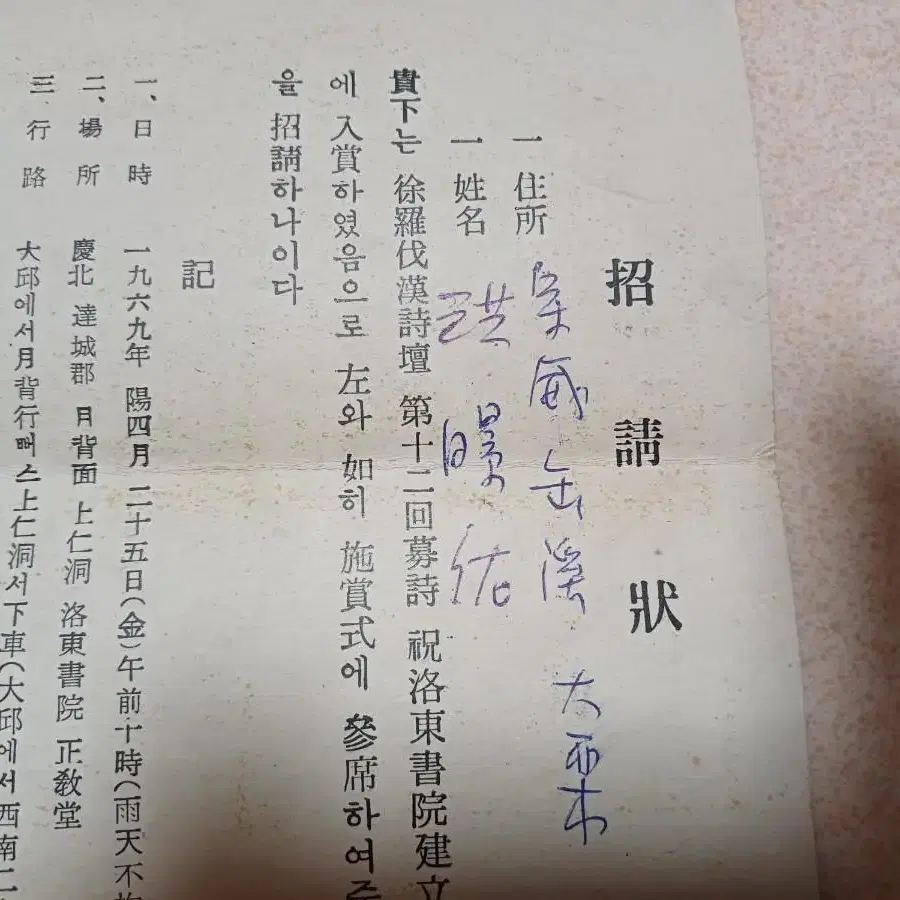 招請狀
一 住所 軍威缶溪 大栗
一 姓名 洪暻
貴下는 徐羅伐漢詩壇 第十二回募詩 祝洛東書院建立
에 入賞하였음으로 左와 如히 施賞式에 參席하여주
을 招請하나이다
記
一、日時 一九六九年 陽四月 二十五日(金)午前十時(雨天不拘
二、場所 慶北 達城郡 月背面 上仁洞 洛東書院 正敎堂
三 行路 大邱에서月背行뻐스上仁洞서下車(大邱에서西南二